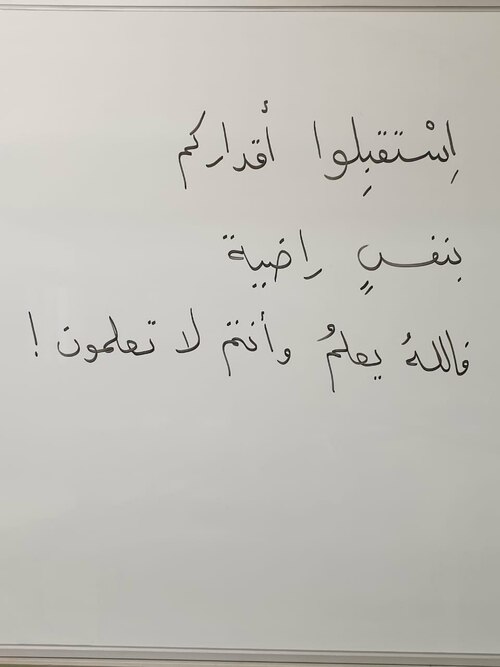 اِسْتقبِلوا أقداركم
بنفسٍ راضية
فاللهُ يعلمُ وأنتم لا تعلمون !